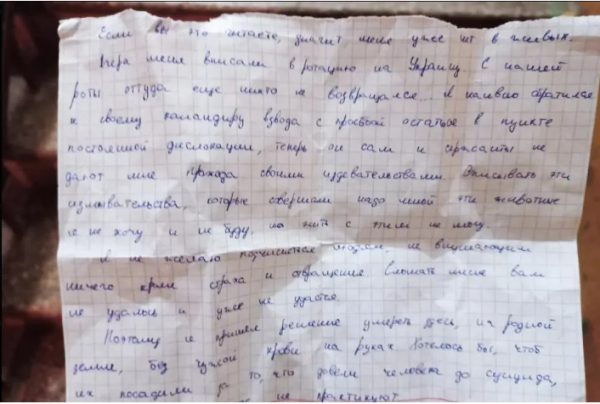 Если вы это читаете, значит меня уже нет в живых.
Вчера меня вписали в ротацию на Украину. С нашей
роты оттуда еще никто не возвращался. Я наивно обратился
к своему командиру взвода с просьбой остаться в пункте
постоянной дислокации, теперь он сам и сержанты не
дают мне прохода своими издевательствами. Описывать эти
издевательства, которые совершали надо мной эти животные
я не хочу и не буду, но жить с этим не могу.
Я не желаю подчиняться людям, не внушающим
ничего кроме страха и отвращения. Сломать меня вам
не удалось и уже не удастся.
Поэтому я принял решение умереть здесь, на родной
земле, без чужой крови на руках. Хотелось бы, чтоб
их посадили за то, что довели человека до суицида,
не практикуют